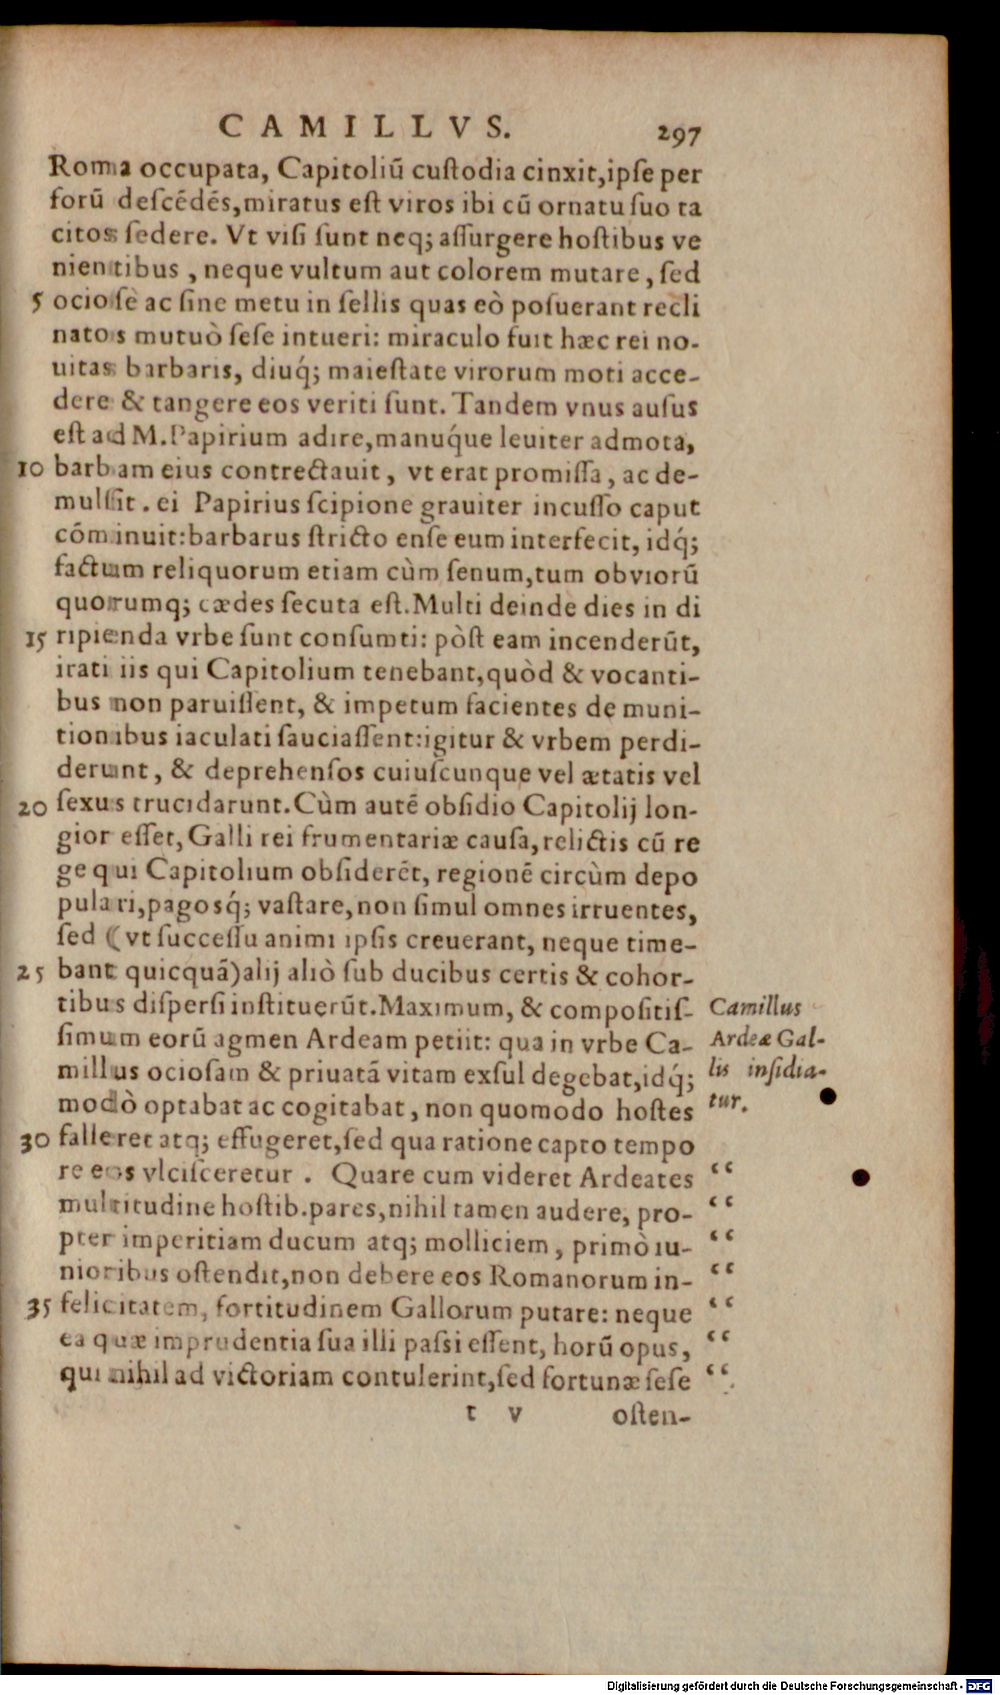 CAMILLVS. 297
Roma occupata, Capitoliũ cuſtodia cinxit,ipſe per
forũ deſcẽdẽs,miratus eſt viros ibi cũ ornatu ſuo ta
citos ſedere. Vt viſi ſunt neq; aſſurgere hoſtibus ve
nientibus, neque vultum aut colorem mutare, ſed
5 ocioſè ac ſine metu in ſellis quas eò poſuerant recli
natos mutuò ſeſe intueri: miraculo fuit hæc rei no-
uitas barbaris, diuq́; maieſtate virorum moti acce-
dere & tangere eos veriti ſunt. Tandem vnus auſus
eſt ad M.Papirium adire,manuq́ue leuiter admota,
10 barbam eius contrectauit, vt erat promiſſa, ac de-
mulſit. ei Papirius ſcipione grauiter incuſſo caput
cõminuit:barbarus ſtricto enſe eum interfecit, idq́;
factum reliquorum etiam cùm ſenum,tum obviorũ
quorumq; cædes ſecuta eſt.Multi deinde dies in di
15 ripienda vrbe ſunt conſumti: pòſt eam incenderũt,
irati iis qui Capitolium tenebant,quòd & vocanti-
bus non paruiſſent, & impetum facientes de muni-
tionibus iaculati ſauciaſſent:igitur & vrbem perdi-
derunt, & deprehenſos cuiuſcunque vel ætatis vel
20 ſexus trucidarunt.Cùm autẽ obſidio Capitolij lon-
gior eſſet, Galli rei frumentariæ cauſa, relictis cũ re
ge qui Capitolium obſiderẽt, regionẽ circùm depo
pulari,pagosq́; vaſtare, non ſimul omnes irruentes,
ſed (vt ſucceſſu animi ipſis creuerant, neque time-
25 bant quicquã)alij aliò ſub ducibus certis & cohor-
tibus diſperſi inſtituerũt.Maximum, & compoſitiſ-
ſimum eorũ agmen Ardeam petiit: qua in vrbe Ca-
millus ocioſam & priuatã vitam exſul degebat,idq́;
modò optabat ac cogitabat, non quomodo hoſtes
30 falleret atq; effugeret,ſed qua ratione capto tempo
re eos vlciſceretur. Quare cum videret Ardeates
multitudine hoſtib.pares,nihil tamen audere, pro-
pter imperitiam ducum atq; molliciem, primò iu-
nioribus oſtendit,non debere eos Romanorum in-
35 felicitatem, fortitudinem Gallorum putare: neque
ea quæ imprudentia ſua illi paſsi eſſent, horũ opus,
qui nihil ad victoriam contulerint,ſed fortunæ ſeſe
t v oſten-
Camillus
Ardeæ Gal-
lis inſidia-
tur.
“
“
“
“
“
“
“
Digitalisierung gefördert durch die Deutsche Forschungsgemeinschaft - DFG